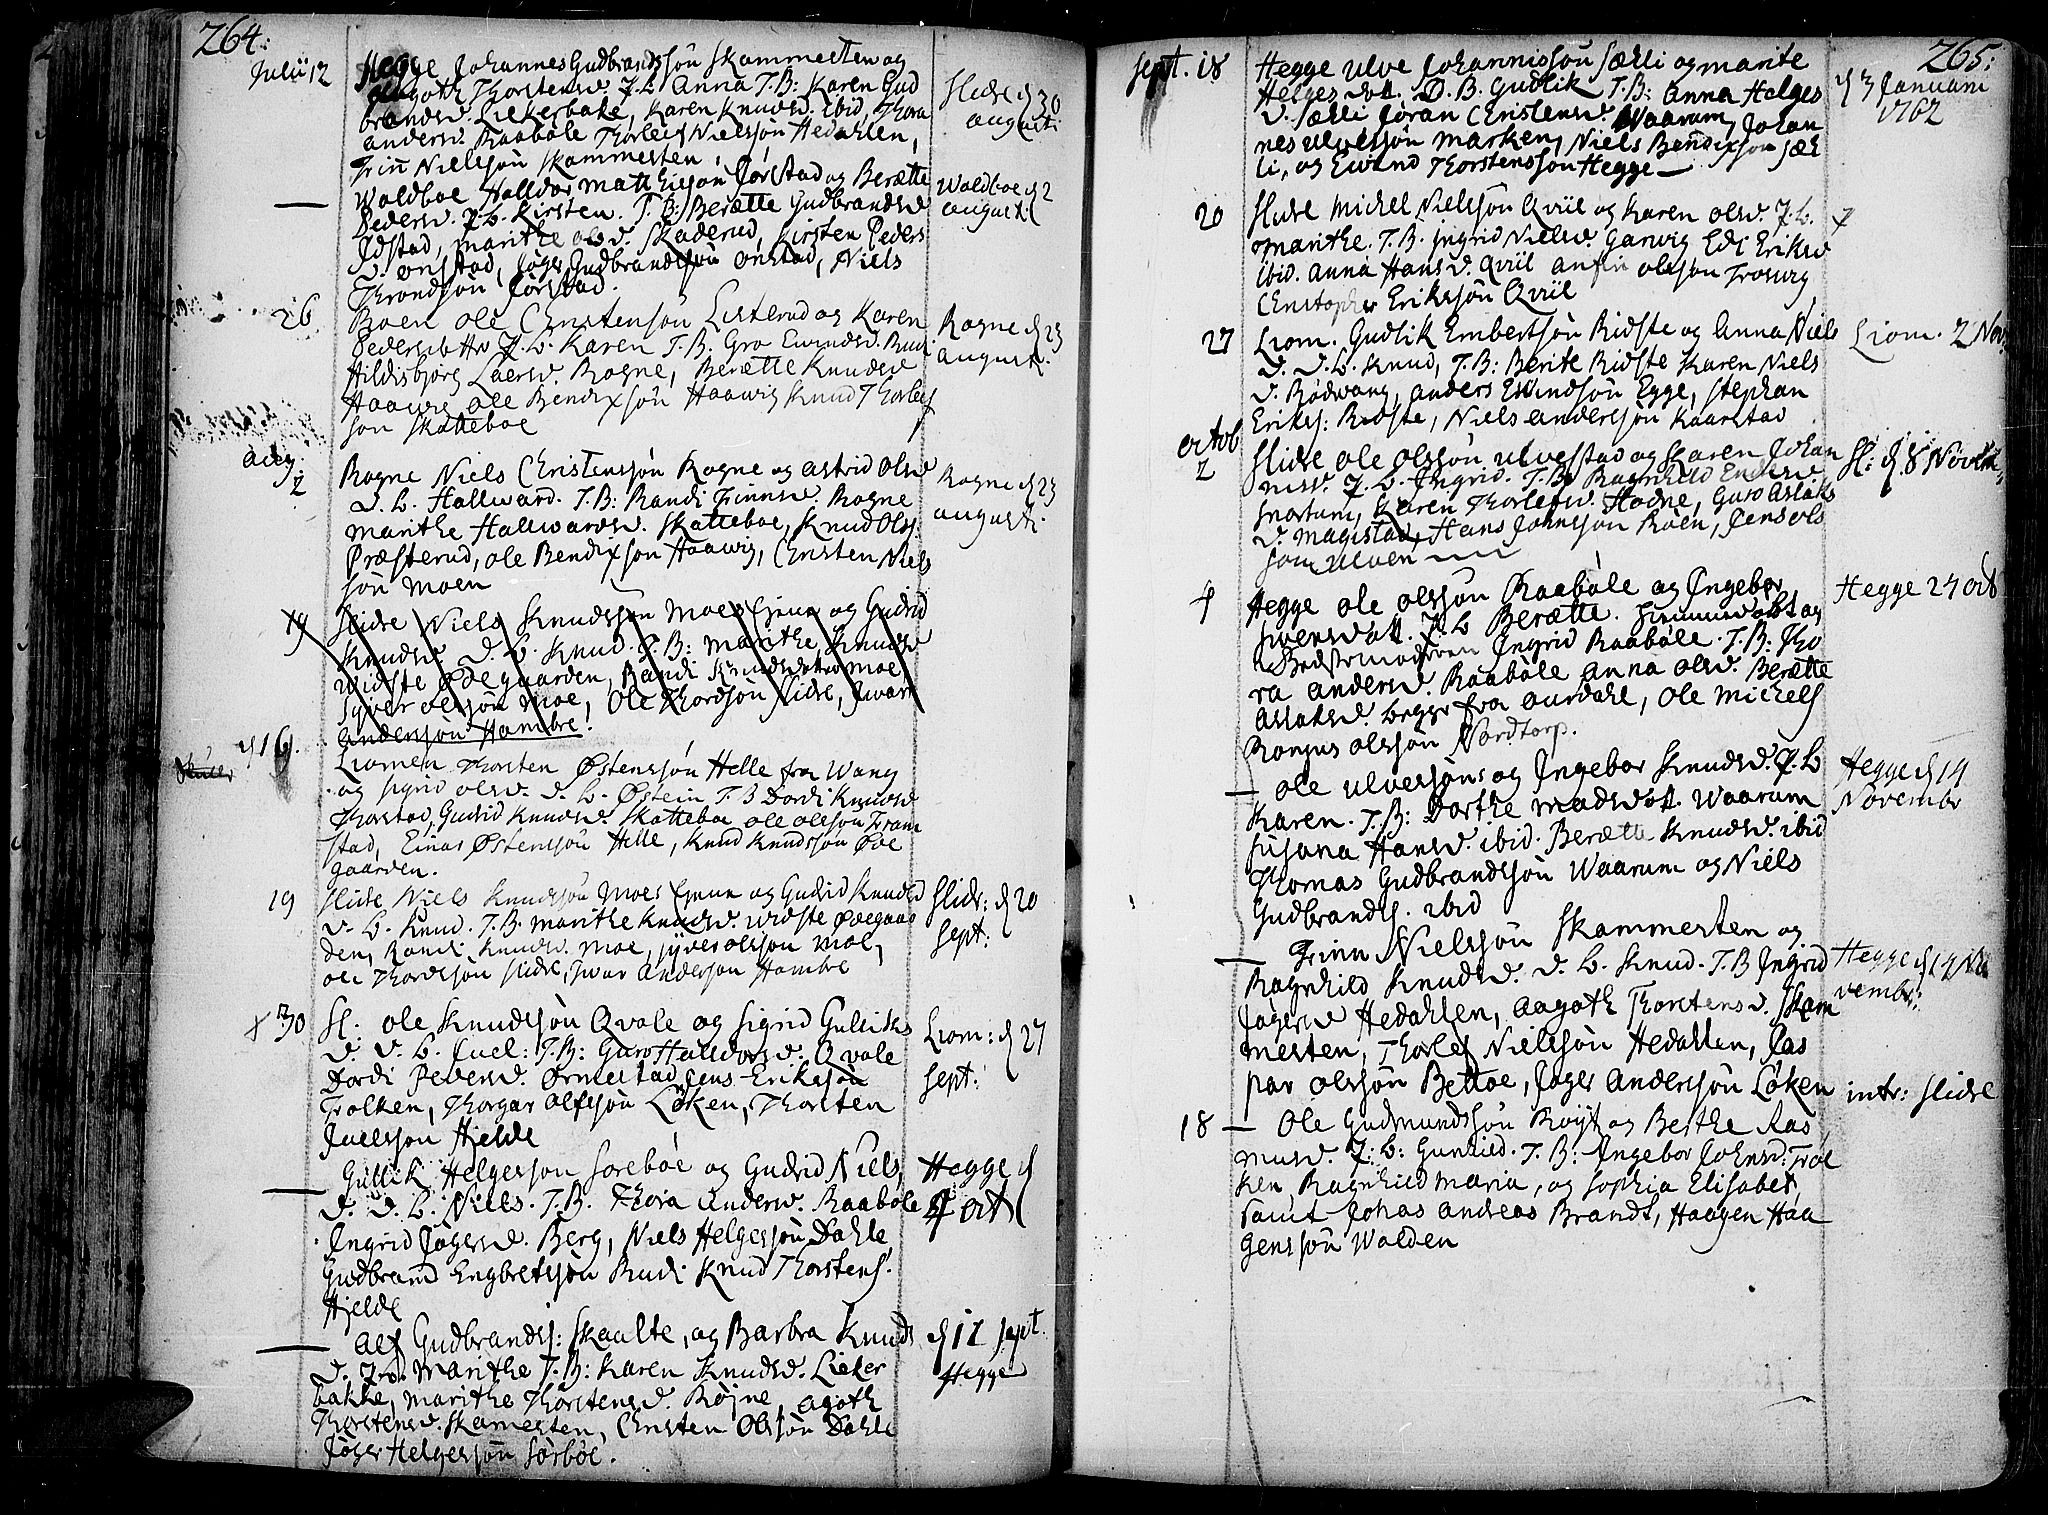 264:
Julii 12
Hegge Johannes Gudbrandssøn Skammesten og
Agoth Thorstensd. J. b. Anna T. B: Karen Gud
brandsd. Liekerbake, Karen Knudsd. ibid, Thora
andersd. Raabøle Thorleif Nielssøn Hedahlen,
Finn Nielssøn Skammesten.
Slidre d 30
augusti
— Waldboe Halldor Matthissøn Jørstad og Berætte
Pedersd. J. b. Kirsten. T. B: Berætte Gudbrandsd
Idstad, Marithe olsd. Skaderud, Kirsten Peders
d. onstad, Jøger Gudbrandssøn onstad, Niels
Throndssøn Jørstad.
Waldboe d 2
augusti
26
Roen ole Christensøn Listerud og Karen
Pedersd. J. b. Karen T. B. Gro Ewindsd. Rudi
Hildisbjørg Laersd. Rogne, Berætte Knudsd
Haawig ole Bendixsøn Haawig Knud Thorleif
søn Skatteboe
Rogne d 23
augusti.
aug.
2
Rogne Niels Christenssøn Rogne og astrid olsd
d. b. Hallward. T. B: Randi Finnsd. Rogne
Marithe Hallwardsd. Skatteboe, Knud Olss.
Præsterud, ole Bendixsøn Haawig, Christen Niels
søn Moen
Rogne d 23
augusti.
19
Slidre Niels Knudssøn Moes Ejnen og Gudrid
Knudsd. d. b. Knud. T. B: Marithe Knudsd
widste Ødegaarden, Randi Knudsdatter Moe
Syver olssøn Moe, Ole Thordsøn Slidre, Iwar
Anderssøn Hambre.
d 16.
Liomen Thorsten Østenssøn Helle fra Wang
og Sigrid olsd. d. b. Østein T. B Dordi Knudsd
Thorstad, Gudrid Knudsd. Skatteboe ole olssøn Fram
stad, Einar Østenssøn Helle, Knud Knudssøn Øde
gaarden.
19
Slidre Niels Knudssøn Moes Ejnen og Gudrid Knudsd
d. b. Knud. T. B. Marithe Knudsd. widste Ødegaar
den, Randi Knudsd. Moe, Syver olssøn Moe,
ole Thordssøn Slidre, Iwar Anderssøn Hambre
Slidr: d 20
Sept:
x 30
Sl: ole Knudssøn Qvale og Sigrid Gulliks
d. d. b. Juel: T. B: Guro Halldorsd. Qvale
Dordi Pedersd. Ormestad Jens Erikssøn
Trolken, Thorgar Alfssøn Løken, Thorsten
Juelssøn Hjelde
Liom: d 27
Sept:
— Gullik Helgessøn Sorebøe og Gudrid Niels
d. d. b. Niels. T. B. Thora Andersd. Raabøle
Ingrid Jøgersd. Berg, Niels Helgessøn Dahle,
Gudbrand Engbretssøn Rudi Knud Thorstens.
Hjelde
Hegge d
4 oct
— Alf Gudbrands: Skaalte, og Barbra Knuds
d. Marithe T. B: Karen Knudsd. Lieker
bakke, Marithe Thorstensd. Røjne, agoth
Thorstensd. Skamesten, Christen Olssøn Dahle
Jøger Helgessøn Sørbøe.
d 11 Sept.
Hegge
265:
Sept. 18
Hegge Ulve Johannissøn Sælli og Marite
Helges datt. D. B. Gudlik T. B: Anna Helges
d. Sælli Jøran Christensd. Waarum, Johan
nes ulvessøn Marken, Niels Bendixsøn Sæl
li, og Ewind Thorstenssøn Hegge —
d 3 Januarii
1762
20
Slidre Michel Nielssøn Qviil og Karen olsd. J. b.
Marithe. T. B. Ingrid Nielsd. Garwig Edi Eriksd
ibid. Anna Hansd. Qviil anfin olssøn Froswig
Christopher Erikssøn Qviil
27
Liom. Gudlik Embertsøn Ridste og Anna Niels
d. d. b. Knud, T. B: Berite Ridste Karen Niels
d. Rødwang, anders Ewindsøn Egge, Stephan
Eriks: Ridste, Niels anderssøn Kaarstad
Liom. 2 Nov:
octob
2
Slidre ole olssøn ulvestad og Karen Johan
nisd. J. b. Ingrid. T. B. Ragnhild Endersd
Snortum, Karen Thorlefsd. Hodne, Guro Aslaks
d. Magistad, Hans Johnssøn Roen, Jens ols
søn ulven
Sl: d 8 Novem
4
Hegge ole olssøn Raabøle og Ingebor
Svensdatt. J. b Berætte.
Ingrid Raabøle. T. B: Tho
ra andersd. Raabøle Anna olsd. Berætte
Aslaksd. begge fra aurdahl, Ole Michels
Rongus olssøn Nordtorp.
Hegge 24 oct
— ole ulverssøns og Ingebor Knudsd. J. b
Karen. T. B: Dorthe Madsdat. Waarum
Susana Hansd. ibid. Berætte Knudsd. ibid
Thomas Gudbrandssøn Waarum og Niels
Gudbrands. ibid
Hegge d 14
Novembr
— Finn Nielssøn Skammesten og
Ragnhild Knudsd. d. b. Knud. T. B Ingrid
Jøgersd Hedahlen, Aagoth Thorstensd. Skam
mesten, Thorlef Nielssøn Hedallen, Jas
par olssøn Bettoe, Jøger Anderssøn Løken
Hegge d 14 No
vembr:
18 — Ole Gudmundssøn Røyt og Berthe Ras
musd. J: b: Gunild. T. B: Ingebor Johnsd: Trol
ken Ragnhild Maria, og Sophia Elisabet,
samt Johas Andreas Brandt, Haagen Haa
genssøn Wolden
intr: Slidre